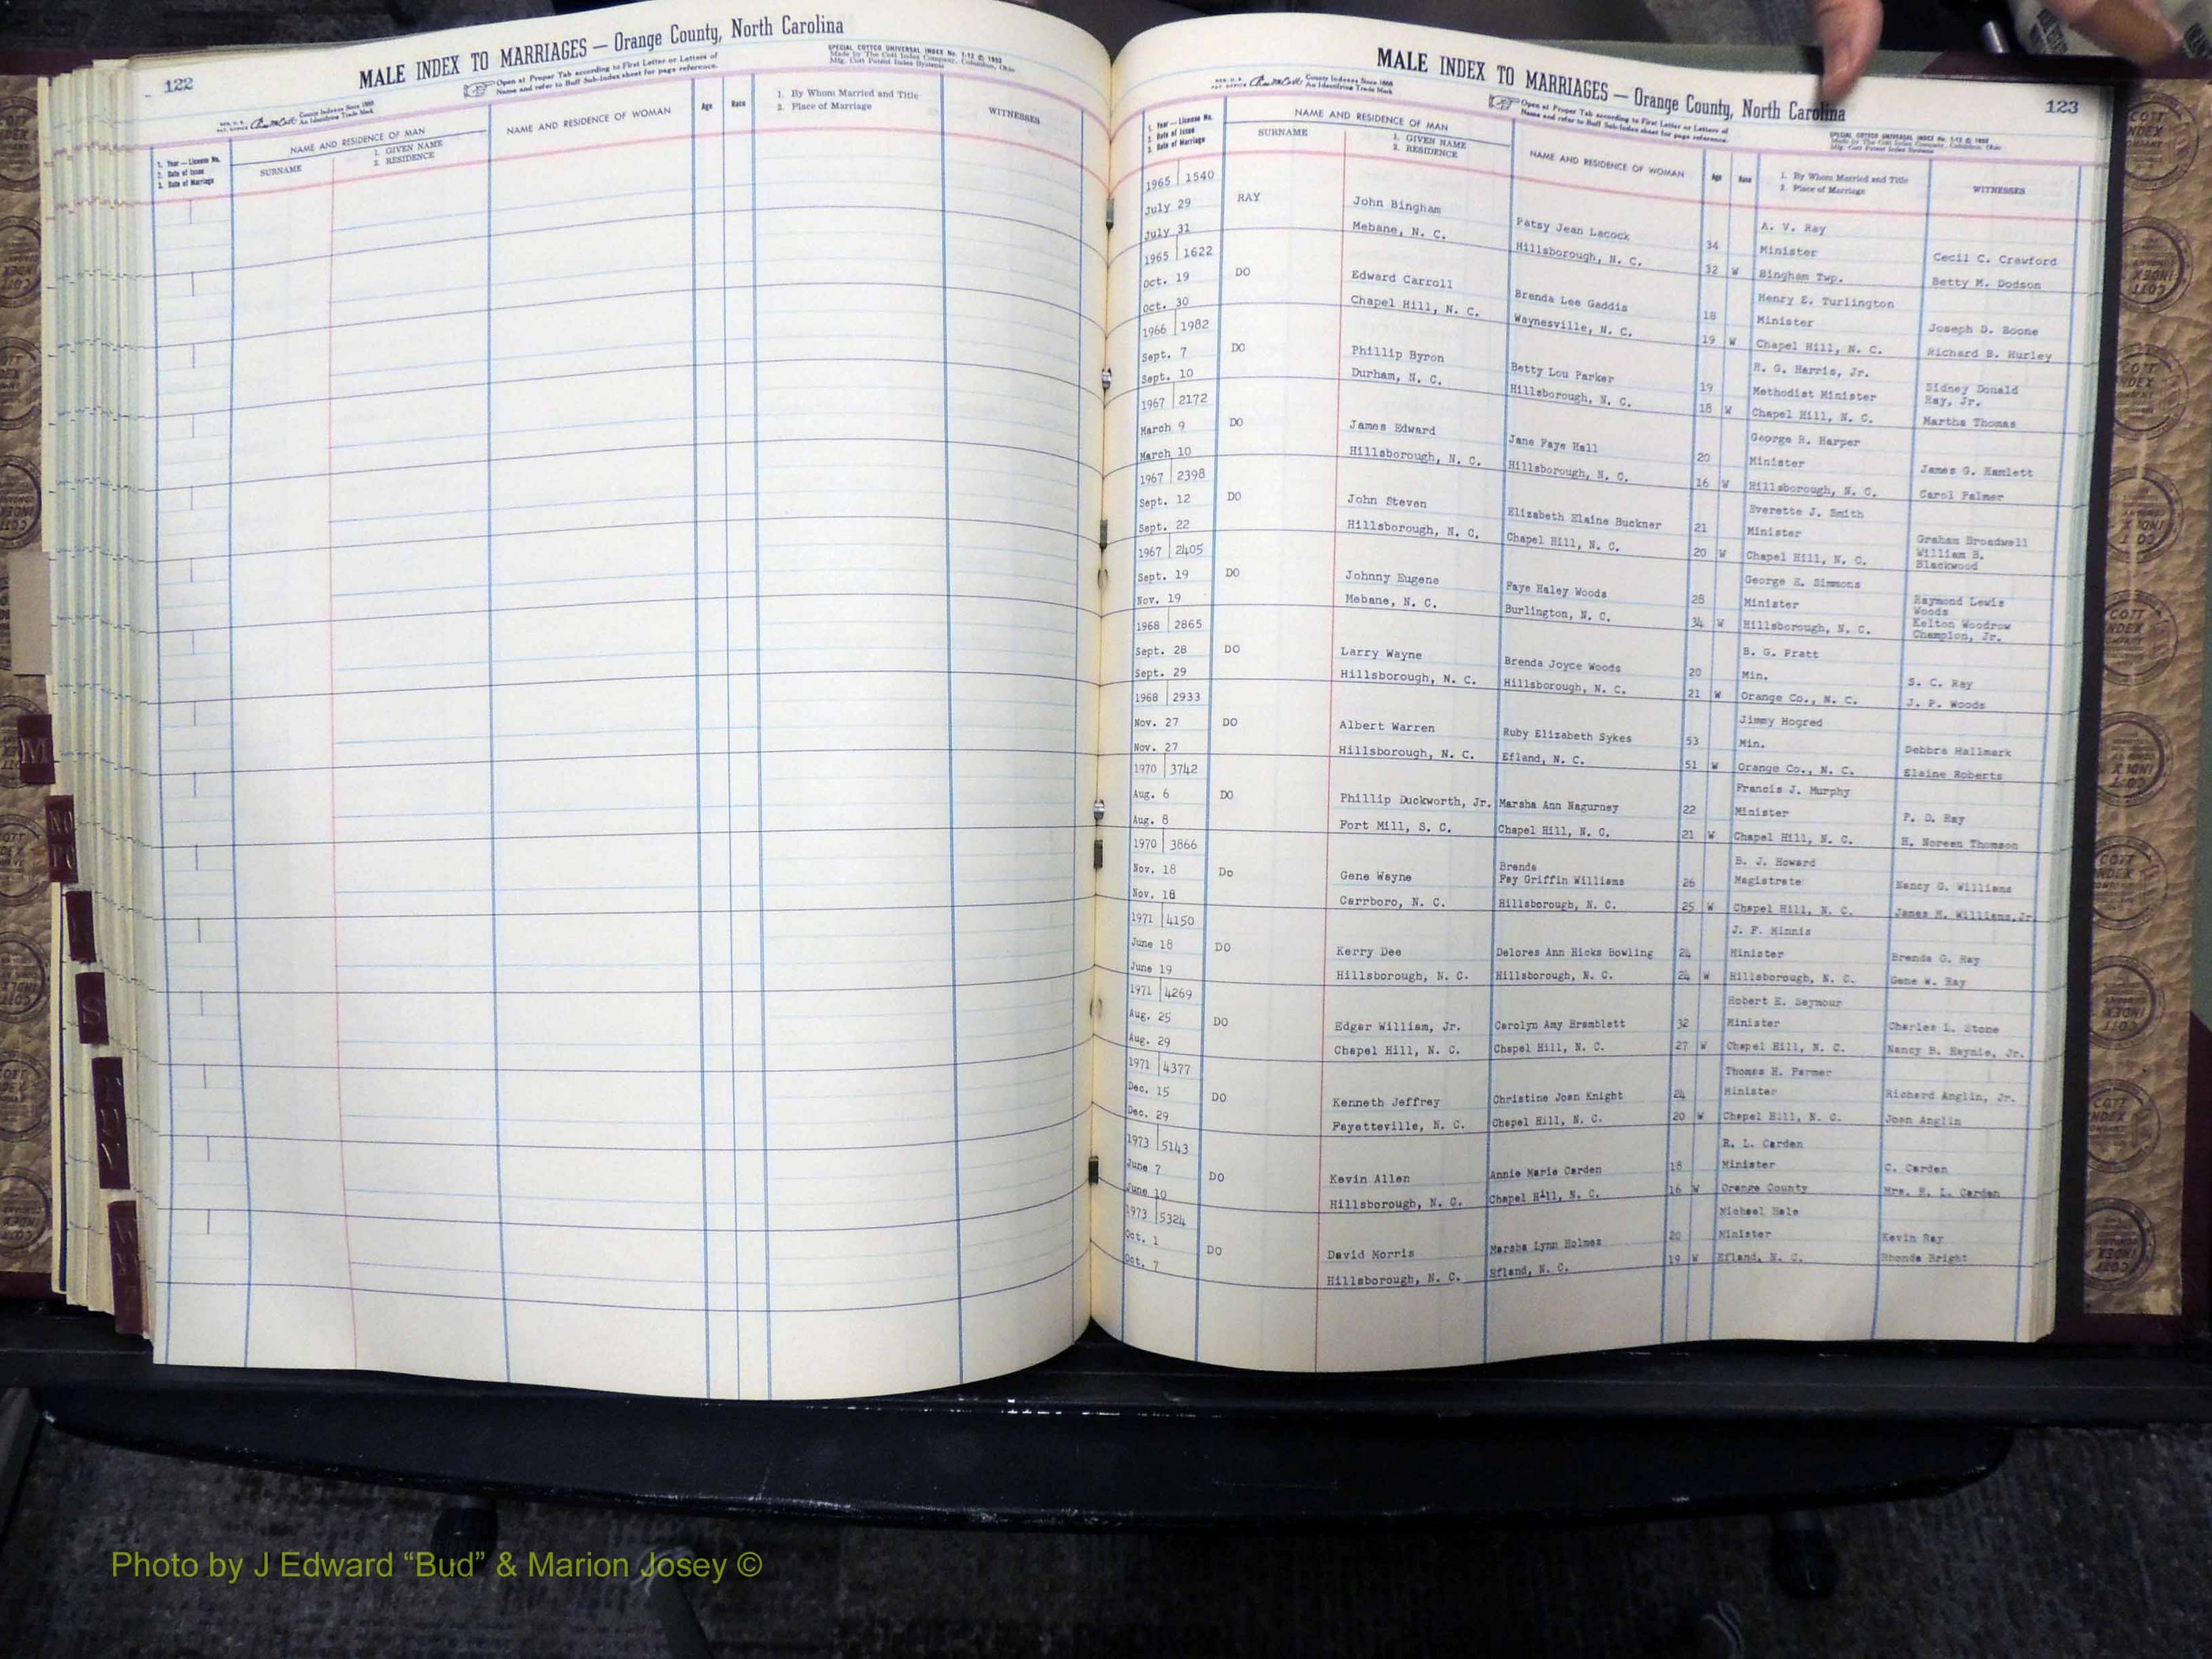 122
MALE INDEX TO MARRIAGES — Orange County, North Carolina
Open at Proper Tab according to First Letter or Letters of
Name and refer to Buff Sub-Index sheet for page reference.
SPECIAL COTTCO UNIVERSAL INDEX No. 1-12 © 1952
Made by The Cott Index Company, Columbus, Ohio
Mfg. Cott Patent Index Systems
County Indexes Since 1888
An Identifying Trade Mark
1. Year — License No.
2. Date of Issue
3. Date of Marriage
NAME AND RESIDENCE OF MAN
SURNAME
1. GIVEN NAME
2. RESIDENCE
NAME AND RESIDENCE OF WOMAN
Age
Race
1. By Whom Married and Title
2. Place of Marriage
WITNESSES
MALE INDEX TO MARRIAGES — Orange County, North Carolina
123
County Indexes Since 1888
An Identifying Trade Mark
Open at Proper Tab according to First Letter or Letters of
Name and refer to Buff Sub-Index sheet for page reference.
SPECIAL COTTCO UNIVERSAL INDEX No. 1-12 © 1952
Made by The Cott Index Company, Columbus, Ohio
Mfg. Cott Patent Index Systems
1. Year — License No.
2. Date of Issue
3. Date of Marriage
NAME AND RESIDENCE OF MAN
SURNAME
1. GIVEN NAME
2. RESIDENCE
NAME AND RESIDENCE OF WOMAN
Age
Race
1. By Whom Married and Title
2. Place of Marriage
WITNESSES
1965 1540 A. V. Ray
July 29 RAY John Bingham Patsy Jean Lacock 34 Minister Cecil C. Crawford
July 31 Mebane, N. C. Hillsborough, N. C. 32 W Bingham Twp. Betty M. Dodson
1965 1622 Henry E. Turlington
Oct. 19 DO Edward Carroll Brenda Lee Gaddis 18 Minister Joseph D. Boone
Oct. 30 Chapel Hill, N. C. Waynesville, N. C. 19 W Chapel Hill, N. C. Richard B. Hurley
1966 1982 R. G. Harris, Jr.
Sept. 7 DO Phillip Byron Betty Lou Parker 19 Methodist Minister Sidney Donald Ray, Jr.
Sept. 10 Durham, N. C. Hillsborough, N. C. 18 W Chapel Hill, N. C. Martha Thomas
1967 2172 George R. Harper
March 9 DO James Edward Jane Faye Hall 20 Minister James G. Hamlett
March 10 Hillsborough, N. C. Hillsborough, N. C. 16 W Hillsborough, N. C. Carol Palmer
1967 2398 Everette J. Smith
Sept. 12 DO John Steven Elizabeth Elaine Buckner 21 Minister Graham Broadwell
Sept. 22 Hillsborough, N. C. Chapel Hill, N. C. 20 W Chapel Hill, N. C. William B. Blackwood
1967 2405 George E. Simmons
Sept. 19 DO Johnny Eugene Faye Haley Woods 28 Minister Raymond Lewis Woods
Nov. 19 Mebane, N. C. Burlington, N. C. 34 W Hillsborough, N. C. Kelton Woodrow Champion, Jr.
1968 2865 B. G. Pratt
Sept. 28 DO Larry Wayne Brenda Joyce Woods 20 Min. S. C. Ray
Sept. 29 Hillsborough, N. C. Hillsborough, N. C. 21 W Orange Co., N. C. J. P. Woods
1968 2933 Jimmy Hogred
Nov. 27 DO Albert Warren Ruby Elizabeth Sykes 53 Min. Debbra Hallmark
Nov. 27 Hillsborough, N. C. Efland, N. C. 51 W Orange Co., N. C. Elaine Roberts
1970 3742 Francis J. Murphy
Aug. 6 DO Phillip Duckworth, Jr. Marsha Ann Nagurney 22 Minister P. D. Ray
Aug. 8 Fort Mill, S. C. Chapel Hill, N. C. 21 W Chapel Hill, N. C. H. Noreen Thomson
1970 3866 Brenda B. J. Howard
Nov. 18 Do Gene Wayne Fay Griffin Williams 26 Magistrate Nancy G. Williams
Nov. 18 Carrboro, N. C. Hillsborough, N. C. 25 W Chapel Hill, N. C. James M. Williams, Jr.
1971 4150 J. F. Minnis
June 18 DO Kerry Dee Delores Ann Hicks Bowling 24 Minister Brenda G. Ray
June 19 Hillsborough, N. C. Hillsborough, N. C. 24 W Hillsborough, N. C. Gene W. Ray
1971 4269 Robert E. Seymour
Aug. 25 DO Edgar William, Jr. Carolyn Amy Bramblett 32 Minister Charles L. Stone
Aug. 29 Chapel Hill, N. C. Chapel Hill, N. C. 27 W Chapel Hill, N. C. Nancy B. Haynie, Jr.
1971 4377 Thomas H. Farmer
Dec. 15 DO Kenneth Jeffrey Christine Joan Knight 24 Minister Richard Anglin, Jr.
Dec. 29 Fayetteville, N. C. Chapel Hill, N. C. 20 W Chapel Hill, N. C. Joan Anglin
1973 5143 R. L. Carden
June 7 DO Kevin Allen Annie Marie Carden 18 Minister C. Carden
June 10 Hillsborough, N. C. Chapel Hill, N. C. 16 W Orange County Mrs. R. L. Carden
1973 5324 Michael Hale
Oct. 1 DO David Morris Marsha Lynn Holmes 20 Minister Kevin Ray
Oct. 7 Hillsborough, N. C. Efland, N. C. 19 W Efland, N. C. Rhonda Bright
M
S
Photo by J Edward “Bud” & Marion Josey ©